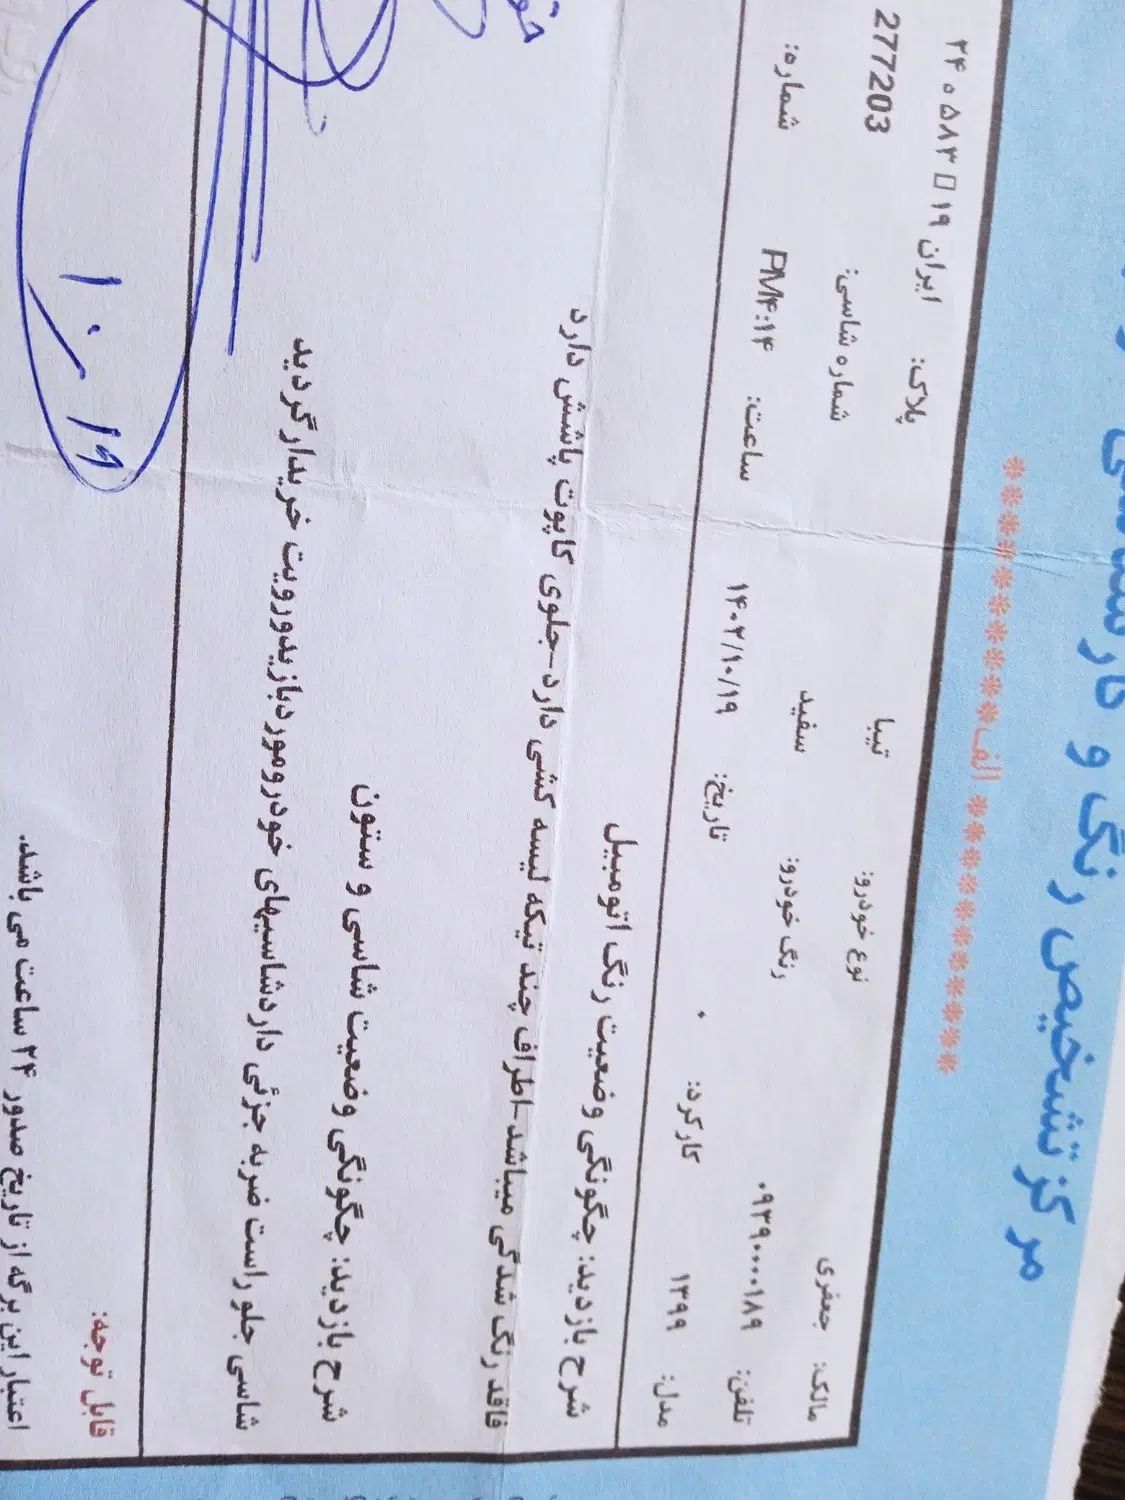 مرکز تشخیص رنگ و کارشناسی
************** الف **************
مالک: جعفری
نوع خودرو: تیبا
پلاک: ایران ۱۹
۵۸۳
۲۴
تلفن: ۰۹۳۹۰۰۰۰۱۸۹
رنگ خودرو: سفید
شماره شاسی: 277203
مدل: ۱۳۹۹
کارکرد: ۰
تاریخ: ۱۴۰۲/۱۰/۱۹
ساعت: PM۴:۱۴
شماره:
شرح بازدید: چگونگی وضعیت رنگ اتومبیل
فاقد رنگ شدگی میباشد-اطراف چند تیکه لیسه کشی دارد-جلوی کاپوت پاشش دارد
شرح بازدید: چگونگی وضعیت شاسی و ستون
شاسی جلو راست ضربه جزئی داردشاسیهای خودرومورد بازیدورویت خریدار گردید
قابل توجه:
اعتبار این برگه از تاریخ صدور ۲۴ ساعت می باشد.
۱۰/۱۹